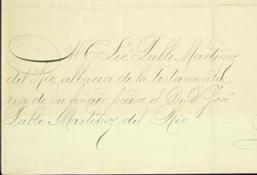 Al C. Lic. Pablo Martinez
del Rio albacea de la testamenta
ria de su finado padre el Sr. D. José
Pablo Martinez del Rio